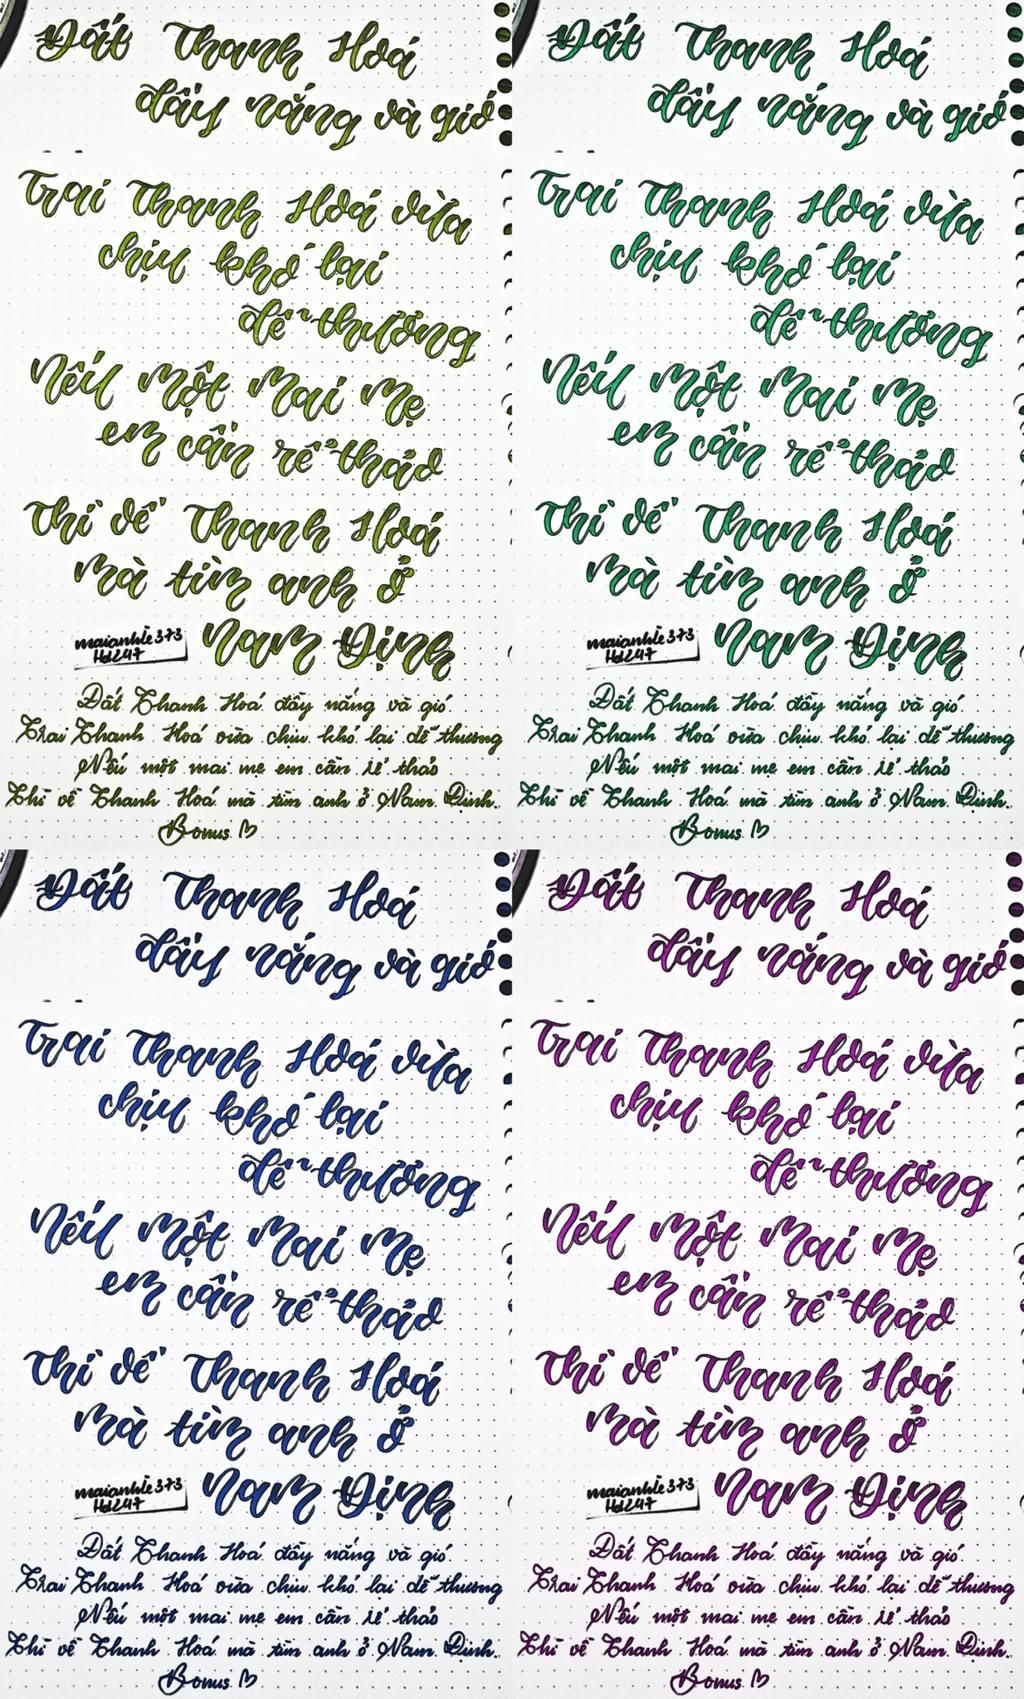 Đất Thanh Hoá
đầy nắng và gió
Trai Thanh Hoá vừa
chịu khó lại
dễ thương
Nếu Một Mai Mẹ
em cần rể thảo
Thì về Thanh Hoá
mà tìm anh ở
Nam Định
maianhle373
Hd247
Đất Thanh Hoá đầy nắng và gió.
Trai Thanh Hoá vừa chịu khó lại dễ thương
Nếu một mai mẹ em cần rể thảo
Thì về Thanh Hoá mà tìm anh ở Nam Định.
Bonus
Đất Thanh Hoá
đầy nắng và gió
Trai Thanh Hoá vừa
chịu khó lại
dễ thương
Nếu Một Mai Mẹ
em cần rể thảo
Thì về Thanh Hoá
mà tìm anh ở
Nam Định
maianhle373
Hd247
Đất Thanh Hoá đầy nắng và gió.
Trai Thanh Hoá vừa chịu khó lại dễ thương
Nếu một mai mẹ em cần rể thảo
Thì về Thanh Hoá mà tìm anh ở Nam Định.
Bonus
Đất Thanh Hoá
đầy nắng và gió
Trai Thanh Hoá vừa
chịu khó lại
dễ thương
Nếu Một Mai Mẹ
em cần rể thảo
Thì về Thanh Hoá
mà tìm anh ở
Nam Định
maianhle373
Hd247
Đất Thanh Hoá đầy nắng và gió.
Trai Thanh Hoá vừa chịu khó lại dễ thương
Nếu một mai mẹ em cần rể thảo
Thì về Thanh Hoá mà tìm anh ở Nam Định.
Bonus
Đất Thanh Hoá
đầy nắng và gió
Trai Thanh Hoá vừa
chịu khó lại
dễ thương
Nếu Một Mai Mẹ
em cần rể thảo
Thì về Thanh Hoá
mà tìm anh ở
Nam Định
maianhle373
Hd247
Đất Thanh Hoá đầy nắng và gió.
Trai Thanh Hoá vừa chịu khó lại dễ thương
Nếu một mai mẹ em cần rể thảo
Thì về Thanh Hoá mà tìm anh ở Nam Định.
Bonus